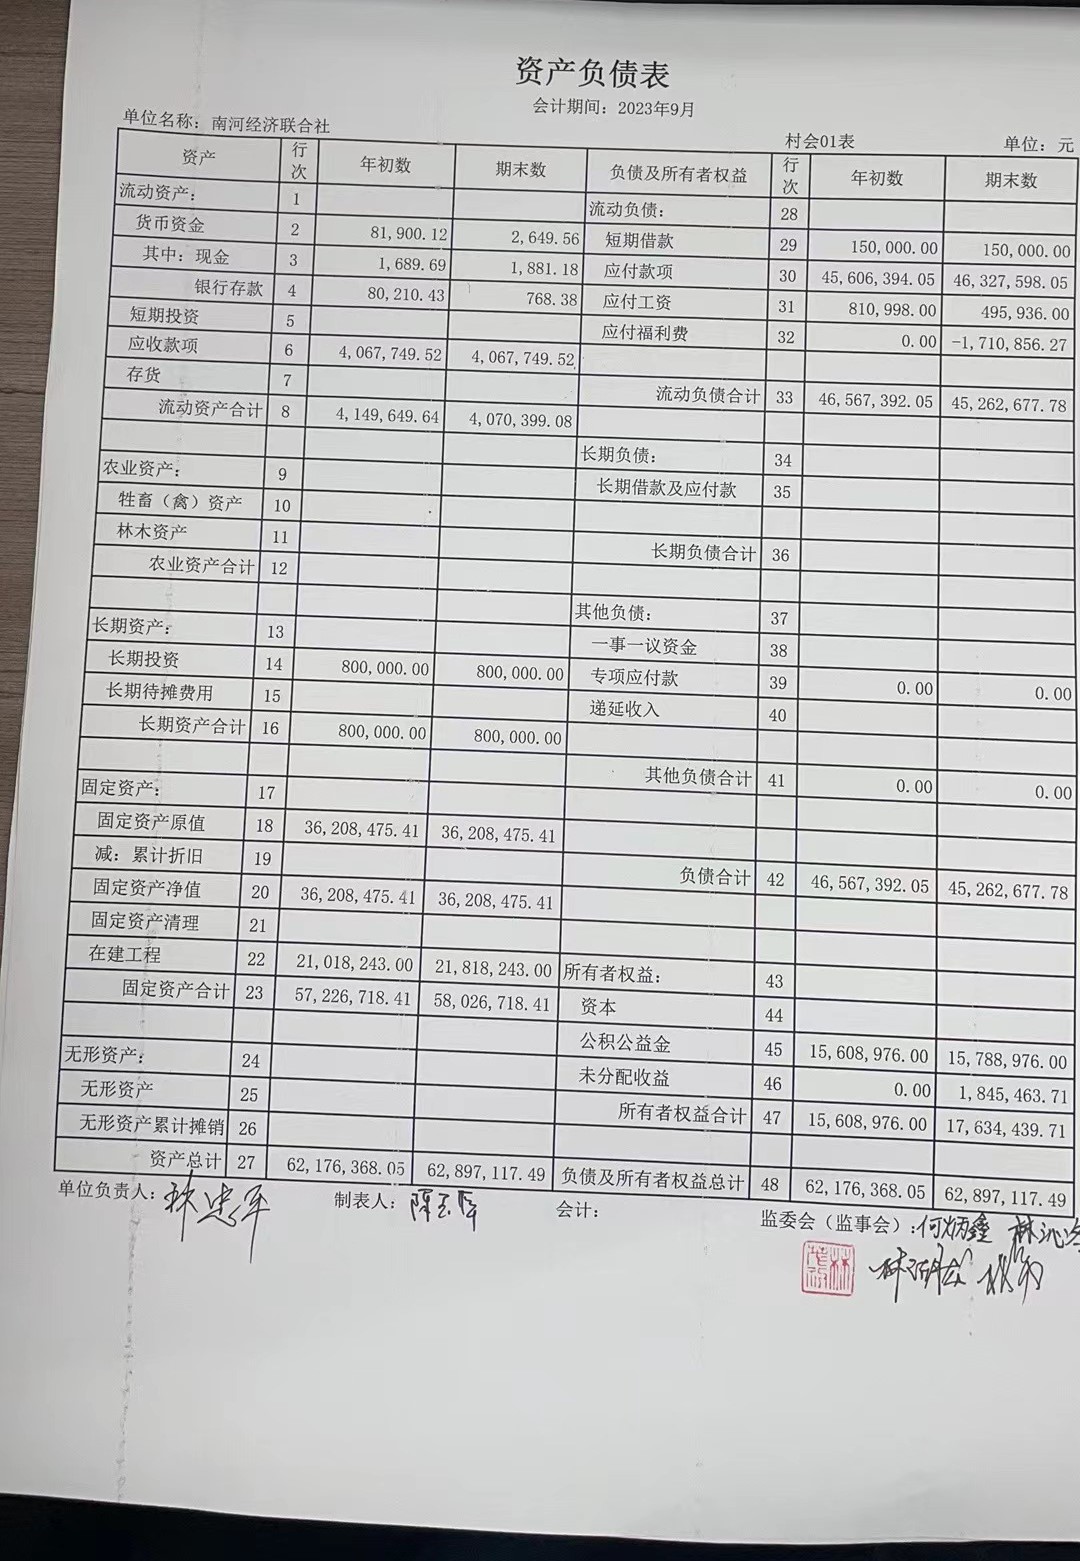 资产负债表
会计期间：2023年9月
单位名称：南河经济联合社 村会01表 单位：元
资产 行次 年初数 期末数 负债及所有者权益 行次 年初数 期末数
流动资产： 1 流动负债： 28
货币资金 2 81,900.12 2,649.56 短期借款 29 150,000.00 150,000.00
其中：现金 3 1,689.69 1,881.18 应付款项 30 45,606,394.05 46,327,598.05
银行存款 4 80,210.43 768.38 应付工资 31 810,998.00 495,936.00
短期投资 5 应付福利费 32 0.00 -1,710,856.27
应收款项 6 4,067,749.52 4,067,749.52
存货 7 流动负债合计 33 46,567,392.05 45,262,677.78
流动资产合计 8 4,149,649.64 4,070,399.08
长期负债： 34
农业资产： 9 长期借款及应付款 35
牲畜（禽）资产 10
林木资产 11 长期负债合计 36
农业资产合计 12
其他负债： 37
长期资产： 13 一事一议资金 38
长期投资 14 800,000.00 800,000.00 专项应付款 39 0.00 0.00
长期待摊费用 15 递延收入 40
长期资产合计 16 800,000.00 800,000.00
其他负债合计 41 0.00 0.00
固定资产： 17
固定资产原值 18 36,208,475.41 36,208,475.41
减：累计折旧 19 负债合计 42 46,567,392.05 45,262,677.78
固定资产净值 20 36,208,475.41 36,208,475.41
固定资产清理 21
在建工程 22 21,018,243.00 21,818,243.00 所有者权益： 43
固定资产合计 23 57,226,718.41 58,026,718.41 资本 44
公积公益金 45 15,608,976.00 15,788,976.00
无形资产： 24 未分配收益 46 0.00 1,845,463.71
无形资产 25 所有者权益合计 47 15,608,976.00 17,634,439.71
无形资产累计摊销 26
资产总计 27 62,176,368.05 62,897,117.49 负债及所有者权益总计 48 62,176,368.05 62,897,117.49
单位负责人： 制表人： 会计： 监委会（监事会）：何炳鑫